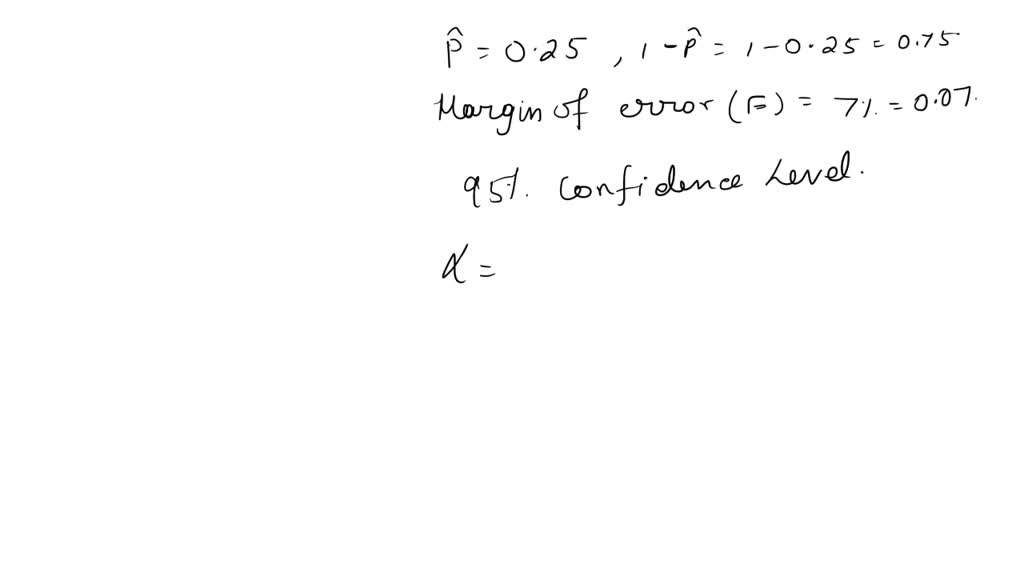 p̂ = 0.25 , 1 - p̂ = 1 - 0.25 = 0.75
Margin of error (E) = 7% = 0.07.
95%. Confidence Level.
α =